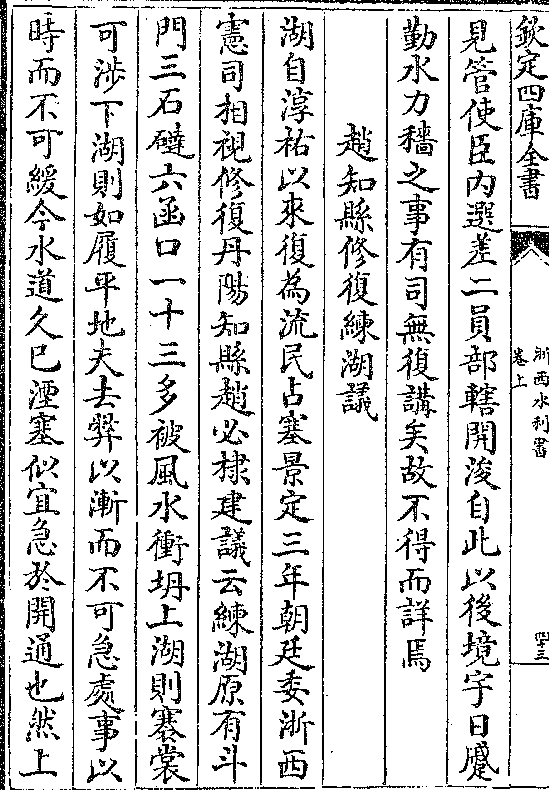 欽定四庫全書
浙西水利書
卷上
四十三
見管使臣内選差二員部轄開浚自此以後境宇日蹙
勤水力穡之事有司無復講矣故不得而詳焉
趙知縣修復練湖議
湖自淳祐以來復為流民占塞景定三年朝廷委浙西
憲司相視修復丹陽知縣趙必棣建議云練湖原有斗
門三石䃮六函口一十三多被風水衝坍上湖則褰裳
可涉下湖則如履平地夫去弊以漸而不可急處事以
時而不可緩今水道久已湮塞似宜急於開通也然上